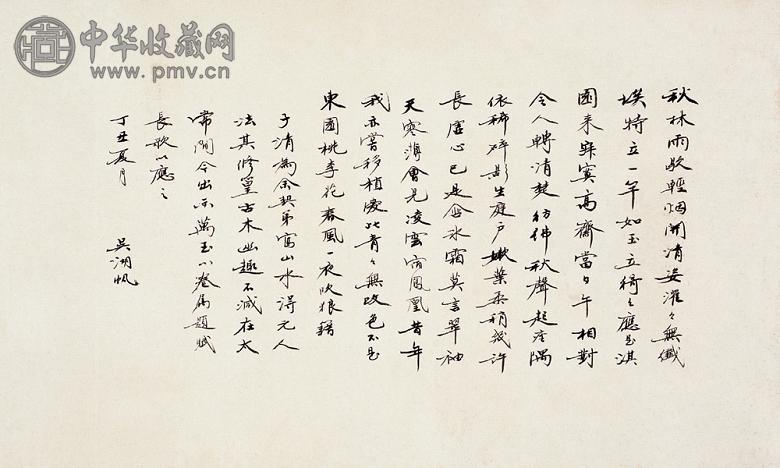 中华收藏网
www.pmv.cn
秋林雨歇輕烟開清姿濯々無纖
埃特立一竿如玉立猗々應是淇
園来寂寞高齋當日午相對
令人轉清楚彷彿秋聲起座隅
依稀碎影生庭戶嫩葉柔梢幾許
長虛心已是冰霜莫言翠袖
天寒薄會見凌雲宿鳳凰昔年
我亦嘗移植愛此青々無改色不
東園桃李花春風一夜吹狼藉
子清為余契弟寫山水得元人
法其修篁古木幽趣不減在太
常間今出示萬玉小卷屬題賦
長歌以應之
丁丑夏月 吳湖帆